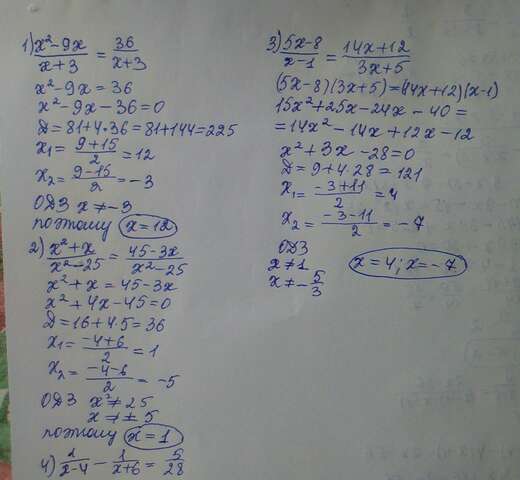 1) x²-9x / x+3 = 36 / x+3
x²-9x=36
x²-9x-36=0
D=81+4·36=81+144=225
x₁= 9+15 / 2 =12
x₂= 9-15 / 2 = -3
ОДЗ x≠-3
поэтому x=12
2) x²+x / x²-25 = 45-3x / x²-25
x²+x=45-3x
x²+4x-45=0
D=16+4·5=36
x₁= -4+6 / 2 =1
x₂= -4-6 / 2 = -5
ОДЗ x²≠25
x≠±5
поэтому x=1
4) 2 / x-4 - 1 / x+6 = 5 / 28
3) 5x-8 / x-1 = 14x+12 / 3x+5
(5x-8)(3x+5)=(14x+12)(x-1)
15x²+25x-24x-40=
=14x²-14x+12x-12
x²+3x-28=0
D=9+4·28=121
x₁= -3+11 / 2 =4
x₂= -3-11 / 2 = -7
ОДЗ
x≠1
x≠- 5 / 3
x=4; x=-7